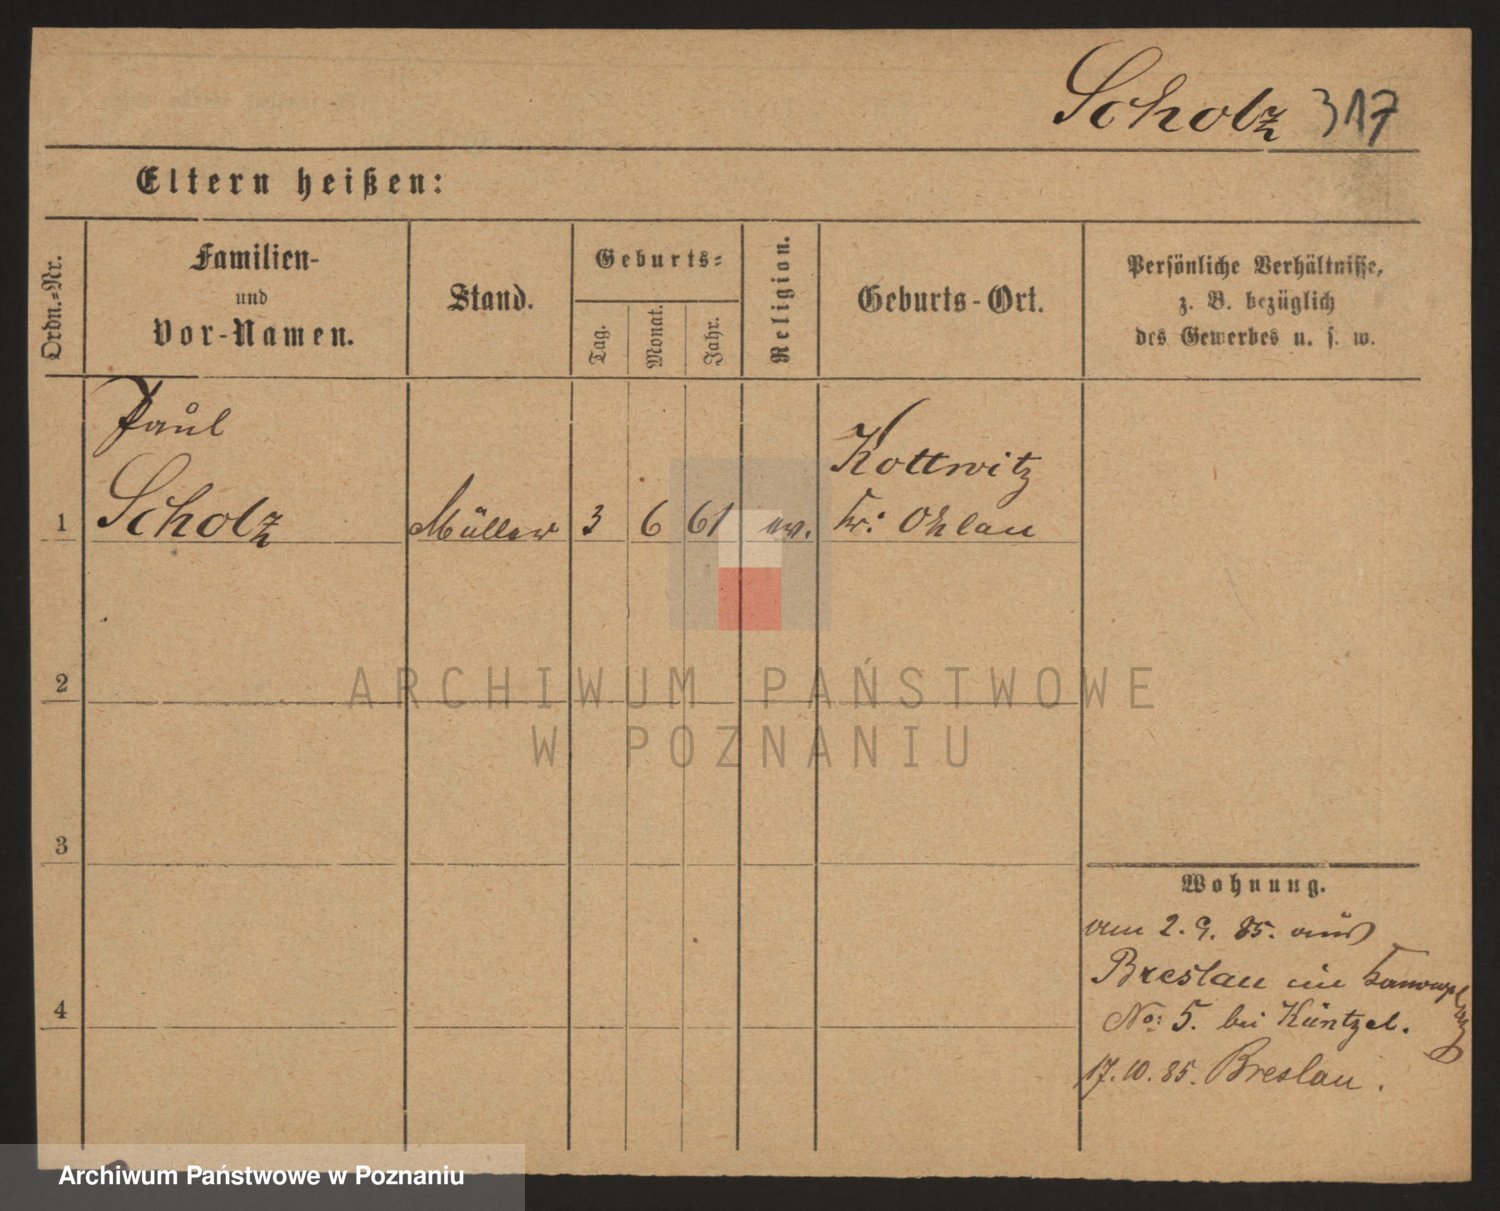 Scholz 317
Eltern heißen:
Ordn.=Nr.
Familien-
und
Vor-Namen.
Stand.
Geburts=
Tag.
Monat.
Jahr.
Religion.
Geburts-Ort.
Persönliche Verhältnisse,
z. B. bezüglich
des Gewerbes u. s. w.
Paul
Kottwitz
1 Scholz Müller 3 6 61 ev. Kr: Ohlau
2
3
4
Wohnung.
am 2. 9. 85. aus
Breslau
No: 5. bei Küntzel.
17. 10. 85. Breslau.
ARCHIWUM PAŃSTWOWE
W POZNANIU
Archiwum Państwowe w Poznaniu